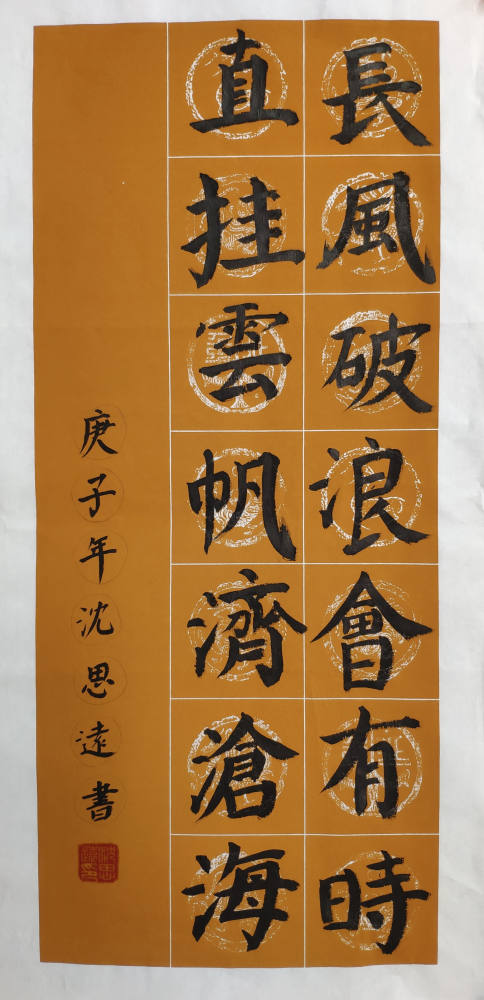 長風破浪會有時
直挂雲帆濟滄海
庚子年沈思遠書